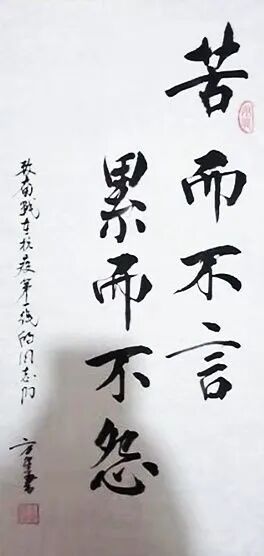 苦而不言
累而不怨
致奋战在抗疫第一线的同志们
方
书